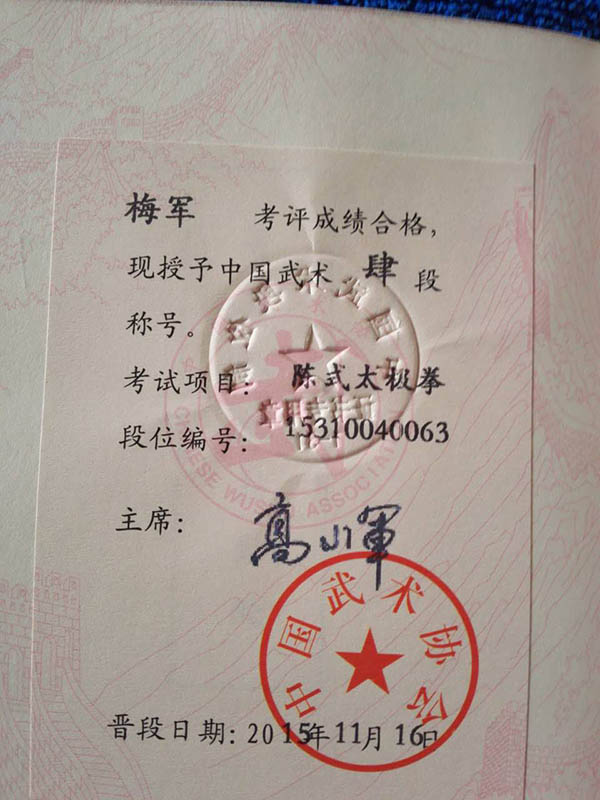 梅军 考评成绩合格,
现授予中国武术 肆 段
称号。
考试项目: 陈式太极拳
段位编号: 15310040063
CHINESE WUSHU ASSOCIATION
主席: 高小軍
中国武术协会
晋段日期: 2015年11月16日